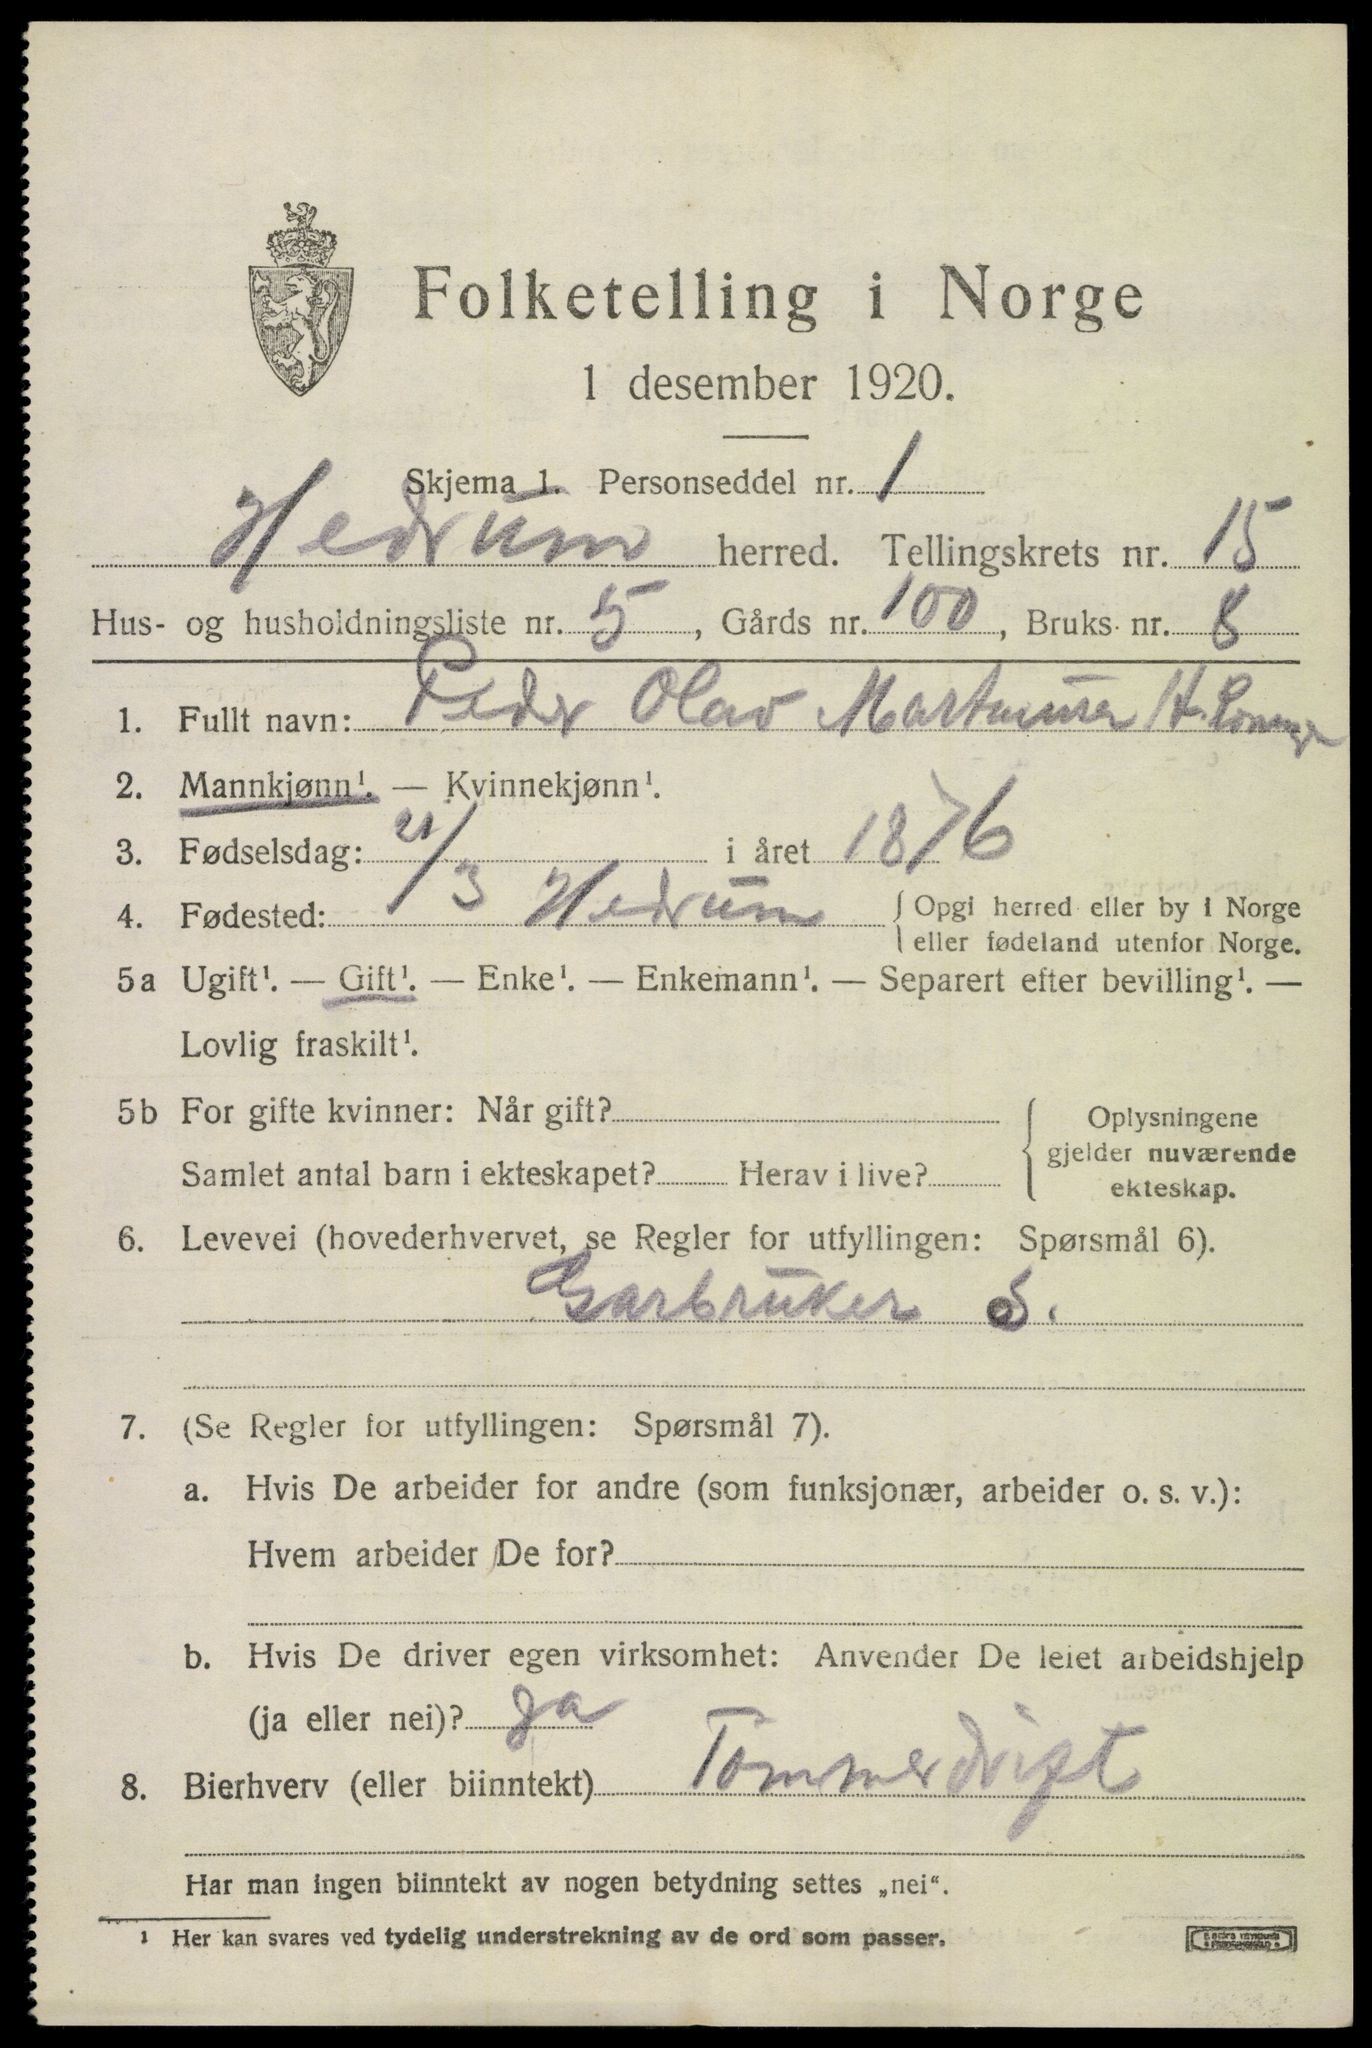 Folketelling i Norge
1 desember 1920.
Skjema 1. Personseddel nr. 1
Hedrum herred. Tellingskrets nr. 15
Hus- og husholdningsliste nr. 5, Gårds nr. 100, Bruks nr. 8
1. Fullt navn: Peder Olav Martinusen H.
2. Mannkjønn¹. — Kvinnekjønn¹.
3. Fødselsdag: 21/3 i året 1876
4. Fødested: Hedrum { Opgi herred eller by i Norge
eller fødeland utenfor Norge.
5a Ugift¹. — Gift¹. — Enke¹. — Enkemann¹. — Separert efter bevilling¹. —
Lovlig fraskilt¹.
5b For gifte kvinner: Når gift?
Samlet antal barn i ekteskapet? Herav i live?
{ Oplysningene
gjelder nuværende
ekteskap.
6. Levevei (hovederhvervet, se Regler for utfyllingen: Spørsmål 6).
Garbruker S.
7. (Se Regler for utfyllingen: Spørsmål 7).
a. Hvis De arbeider for andre (som funksjonær, arbeider o. s. v.):
Hvem arbeider De for?
b. Hvis De driver egen virksomhet: Anvender De leiet arbeidshjelp
(ja eller nei)? ja
8. Bierhverv (eller biinntekt) Tømmerdrift
Har man ingen biinntekt av nogen betydning settes „nei“.
¹ Her kan svares ved tydelig understrekning av de ord som passer.